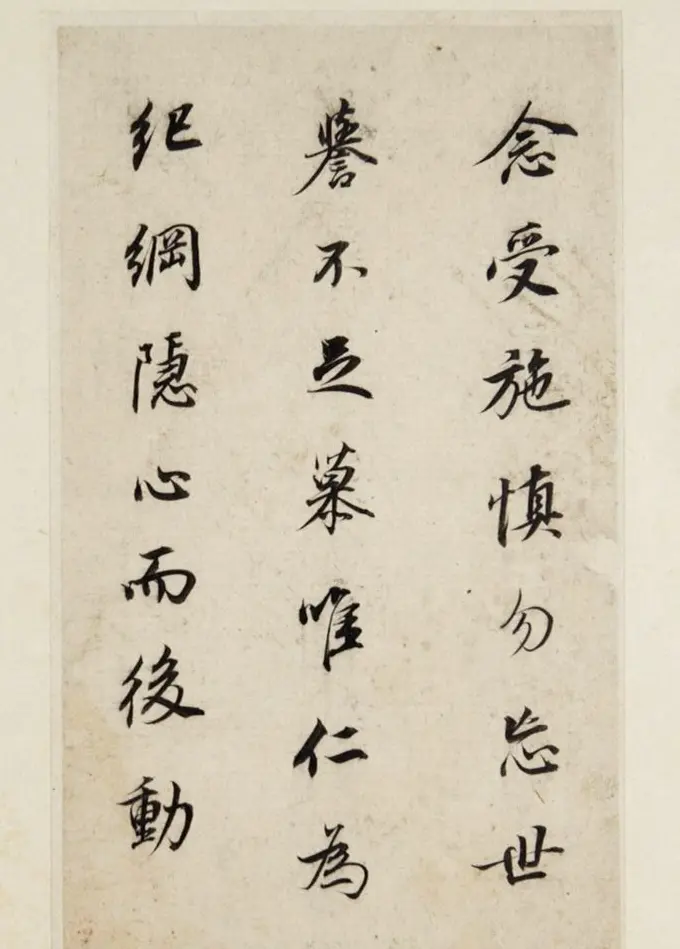 念受施慎勿忘世
譽不足慕唯仁為
紀綱隱心而後動